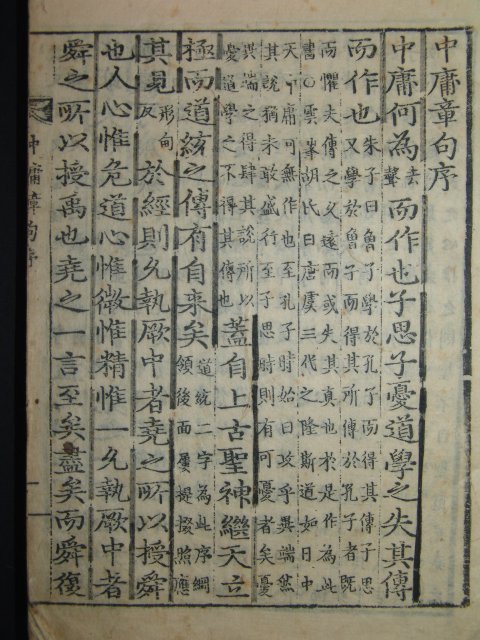 中庸章句序
中庸何為去聲而作也子思子憂道學之失其傳
而作也朱子曰曾子學於孔子而得其傳子思
又學於曾子而得其所傳於孔子者既
而懼夫傳之久遠而或失其真也於是作為此
書○雲峯胡氏曰唐虞三代之隆斯道如日中
天中庸可無作也至孔子時始曰攻乎異端然
其說猶未敢盛行至子思時則有可憂者矣憂
異端之得肆其說所以
憂道學之不得其傳也蓋自上古聖神繼天立
極而道統之傳有自來矣道統二字為此序綱
領後面屢提掇照應
其見形甸反於經則允執厥中者堯之所以授舜
也人心惟危道心惟微惟精惟一允執厥中者
舜之所以授禹也堯之一言至矣盡矣而舜復
中庸章句序